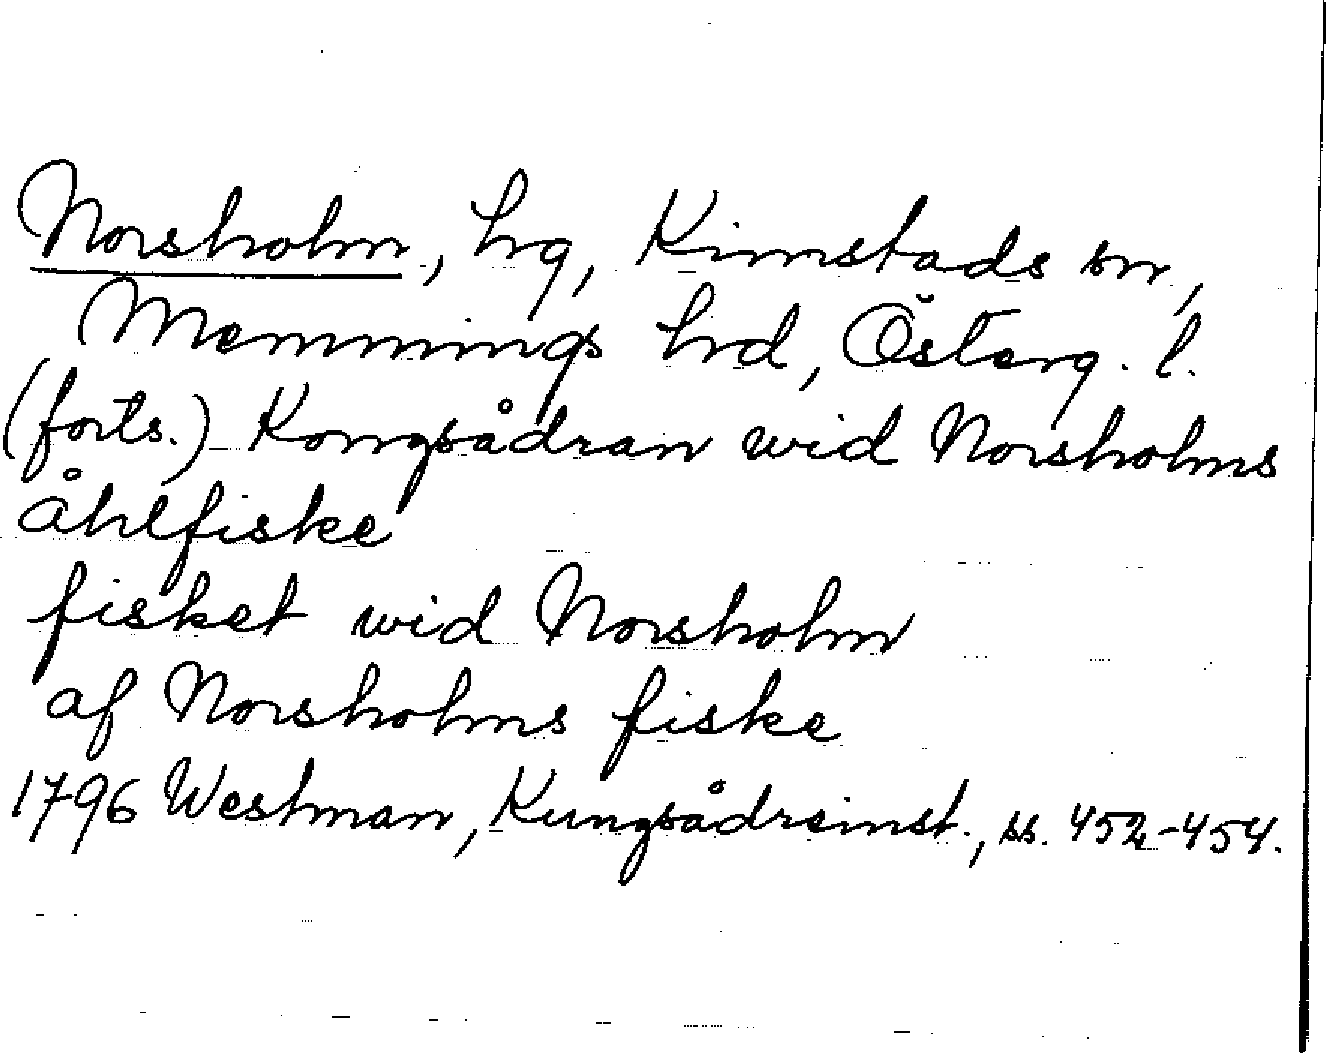 Norsholm, hg, Kimstads sn,
Memmings hrd, Österg. l.
(forts.) Kongsådran wid Norsholms
åhlfiske
fisket wid Norsholm
af Norsholms fiske
1796 Westman, Kungsådreinst., ss. 452-454.